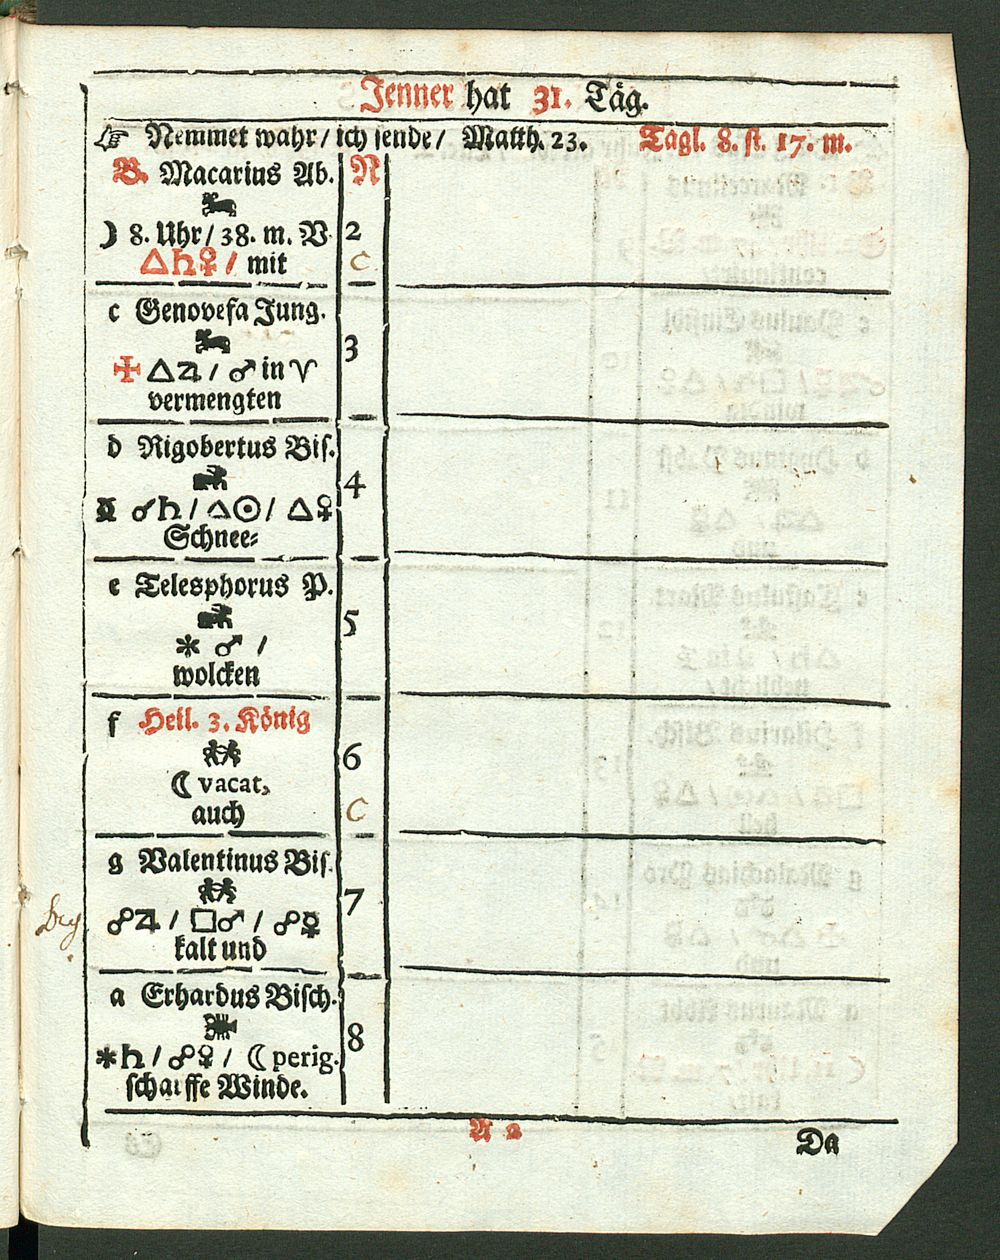 Jenner hat 31. Täg.
☞ Nemmet wahr/ ich sende/ Matth. 23. Tägl. 8. st. 17. m.
B. Macarius Ab. N
☽ 8. Uhr/ 38. m. V 2
△♄♀/ mit C
c Genovefa Jung.
3
✠ △♃/ ♂ in ♈
vermengten
d Rigobertus Bis.
4
☌♄/ △☉/ △♀
Schnee-
e Telesphorus P.
5
✱ ♂ /
wolcken
f Heil. 3. König
6
☾ vacat,
auch C
g Valentinus Bis.
7
☍♃/ □♂/ ☍☿
kalt und
a Erhardus Bisch.
8
✱♄/ ☍♀/ ☾ perig.
scharffe Winde.
A 2 Da